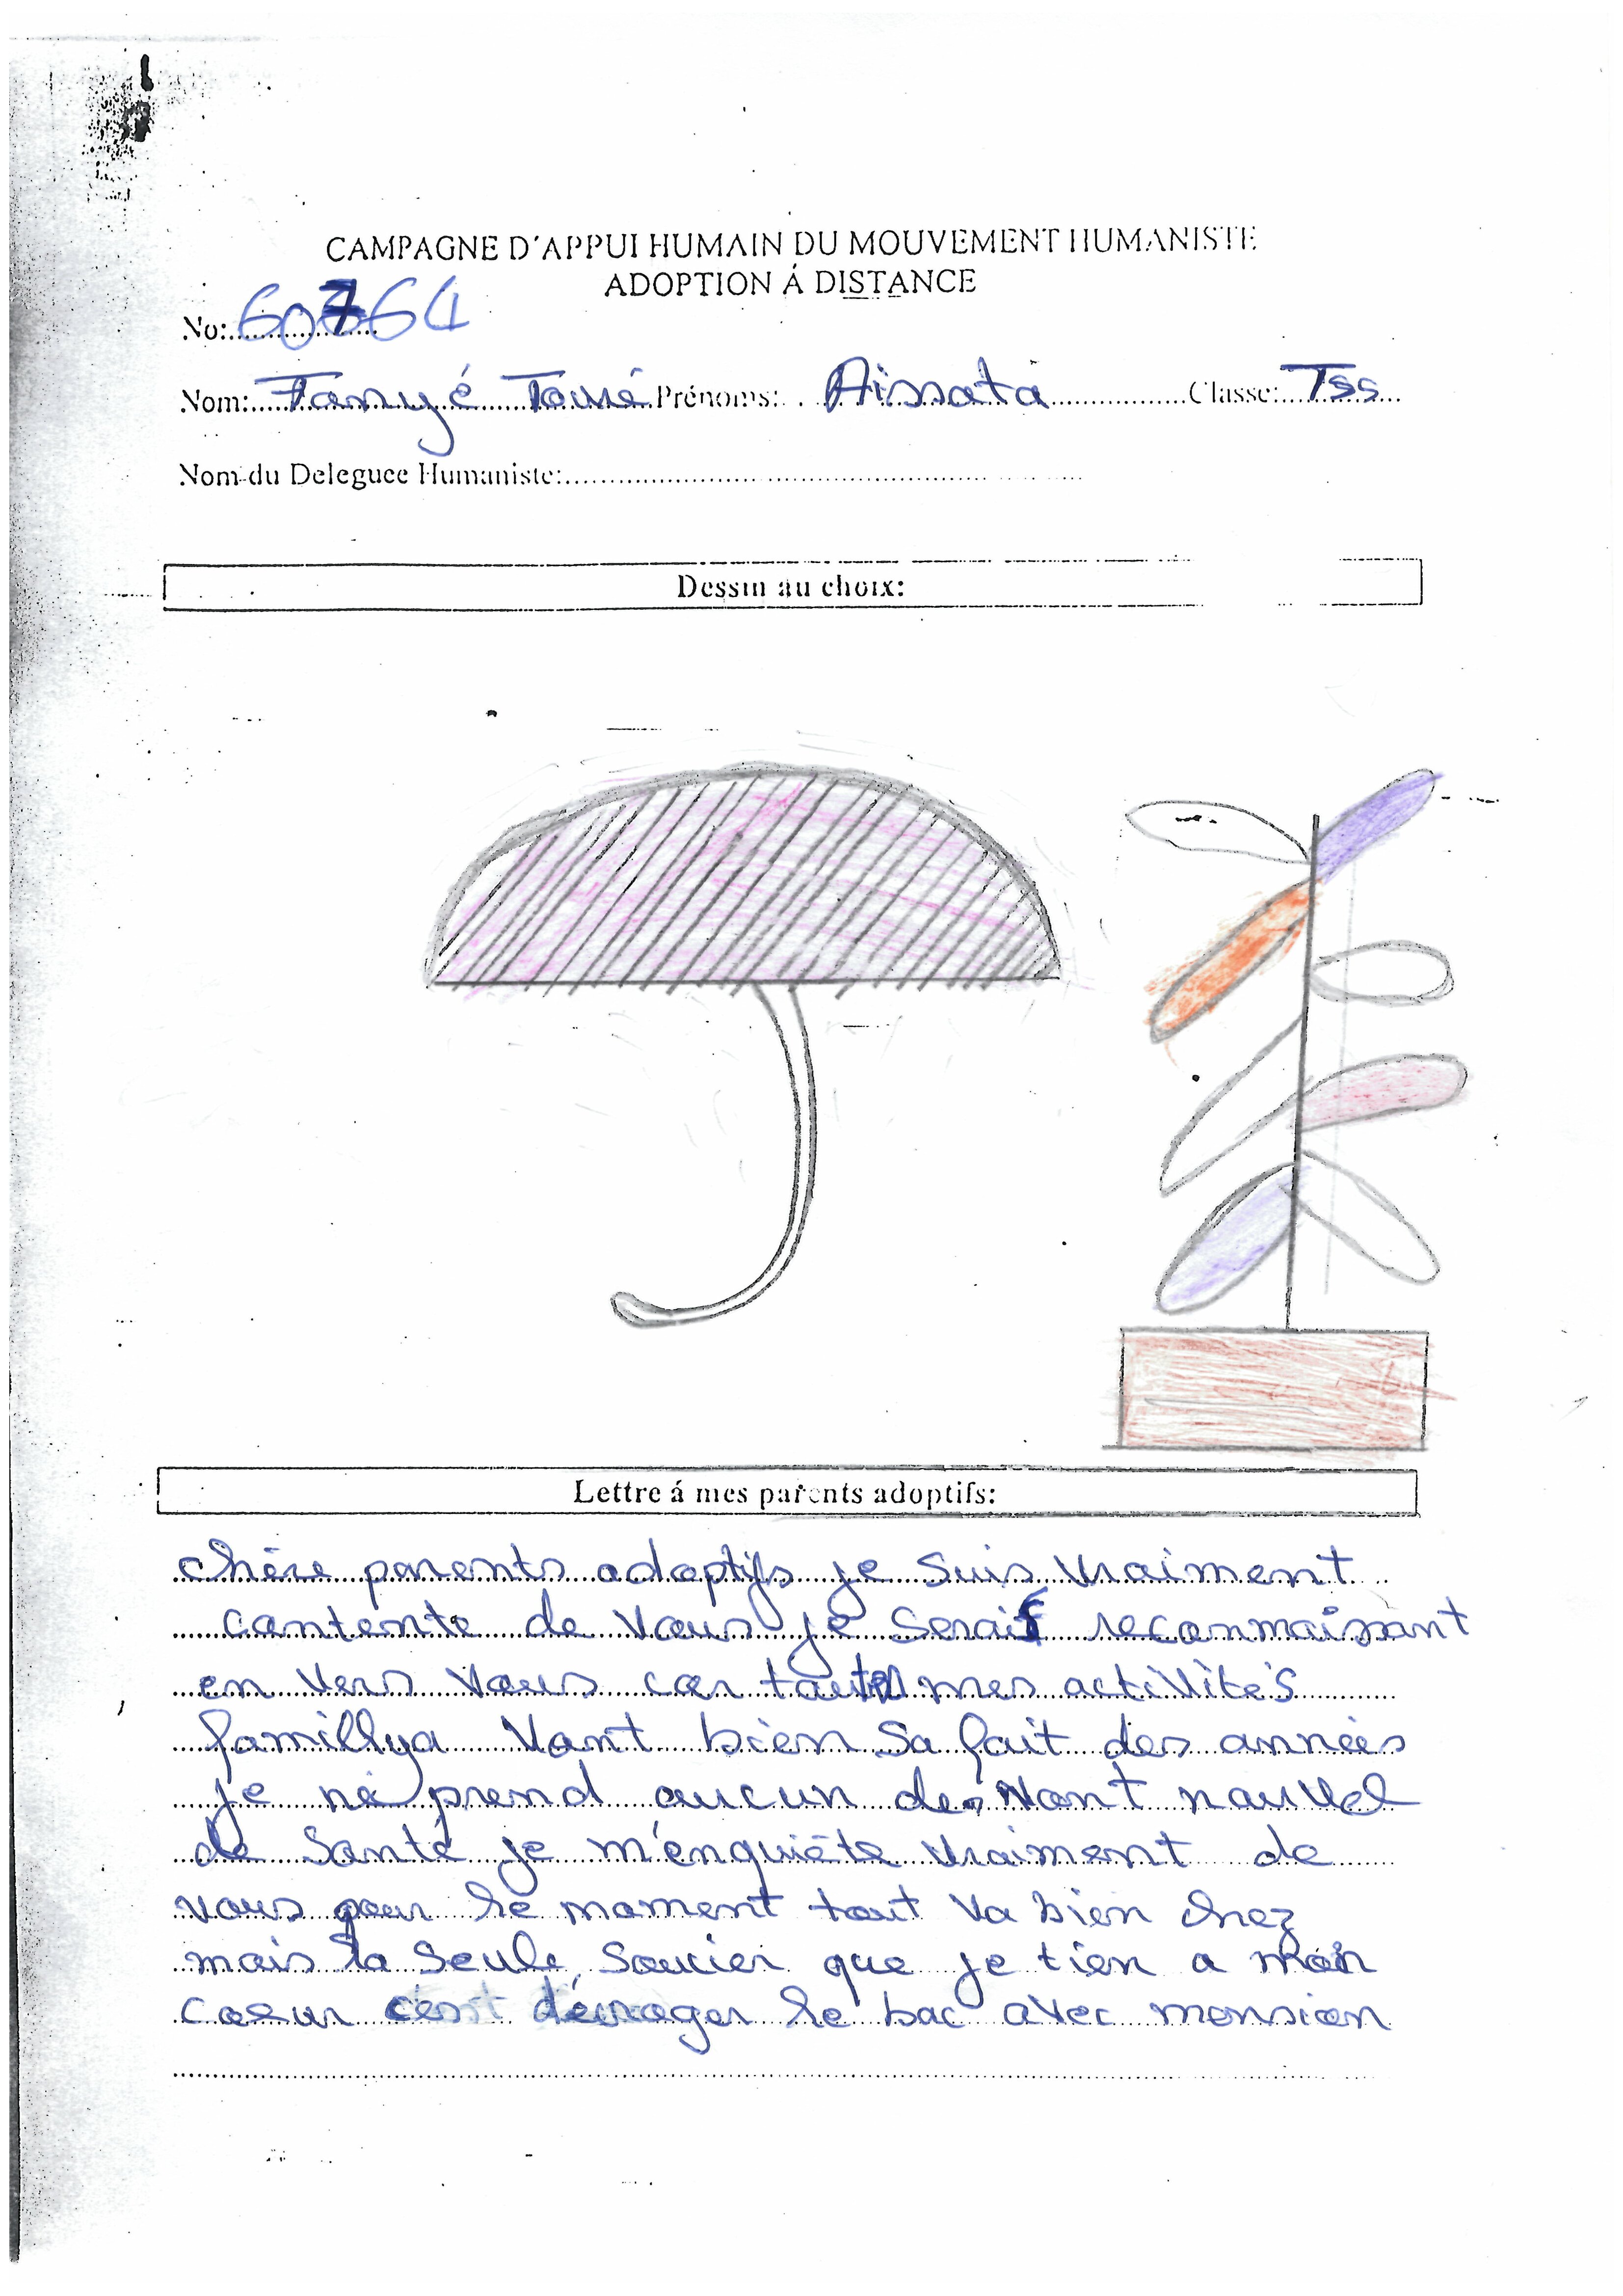 CAMPAGNE D'APPUI HUMAIN DU MOUVEMENT HUMANISTE
ADOPTION Á DISTANCE
No: 60764
Nom: Tanyé Toué Prénoms: Aissata Classe: Tss
Nom du Deleguee Humaniste:
Dessin au choix:
Lettre á mes parents adoptifs:
chère parents adoptifs je suis vraiment
contente de vous je serais reconnaissant
en vers vous car toutes mes activités
famillya vont bien sa fait des années
je ne prend aucun de vont nouvel
de santé je m'enquiète vraiment de
vous pour le moment tout va bien chez
mais la seule soucier que je tien a mon
coeur cest le bac avec mension